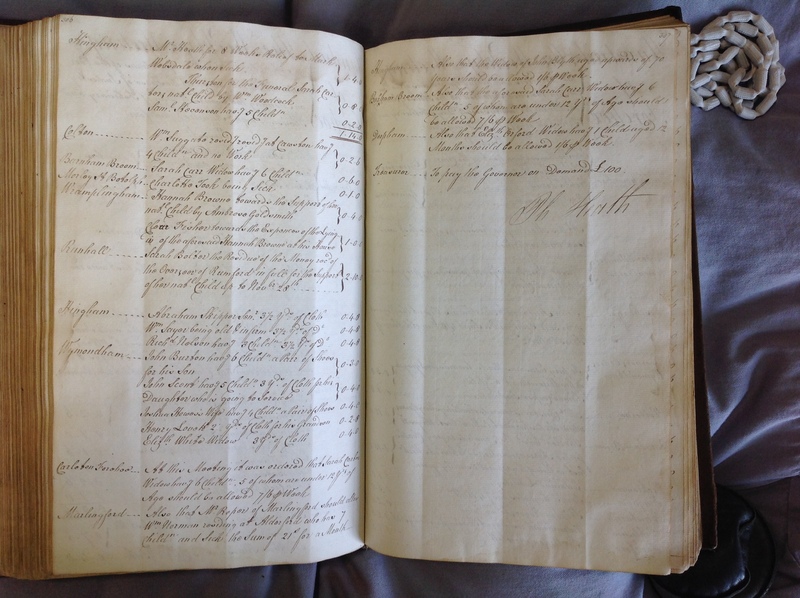 206
Hingham
Mr. Heath for 8 Weeks
1-4
Sarah Car
nat. Child by Wm.
0-8
having 5 Childn.
0-2-6
1-14
Colton
Wm. residing at Cawston having
4 Childn. and no Work
0-2-6
Barnham Broom
Sarah Carr Widow having 6 Childn.
0-6-0
Morley St. Botolph
Charlotte been Sick
0-1-0
Wramplingham
Hannah Browne towards the Support of her
nat. Child by Ambrose Goldsmith
0-4
Fisher towards the Expences of the lying
in of the aforesaid Hannah Browne at his House
Runhall
Sarah Bolter the Residue of the Money recd. of
the Overseer of Rumford in full for the Support
of her nat. Child up to Novr. 28th.
2-10
Hingham
Abraham Skipper Senr. 3½ Yds. of Cloth
0-4-8
Wm. Sayer being old & infirm 3½ Yds. of Do.
0-4-8
Richd. Nelson having 3 Childn. 3½ Yds. of Do.
0-4-8
Wymondham
John Burton having 6 Childn. a Pair of Shoes
for his Son
0-3-
John Scent having 5 Childn. 3 Yds. of Cloth for his
Daughter who is going to Service
0-4
Howes's Wife having 4 Childn. a Pair of Shoes
0-4-
Henry Lovett 2 Yds. of Cloth for his Grandson
0-2-8
Elizth. White Widow 3 Yds. of Cloth
0-4
Carleton Forehoe
At this Meeting it was ordered that Sarah
Widow having 6 Childn. 5 of whom are under 12 Yrs. of
Age should be allowed 7/6 ⅌ Week
Marlingford
Also that Mr. Roper of Marlingford should allow
Wm. Norman residing at Alderford who has 7
Childn. and Sick, the Sum of 21s. for a Month
207
Hingham
Also that the Widow of John aged upwards of 70
Years should be allowed 1/6 ⅌ Week
Barham Broom
Also that the aforesaid Sarah Carr Widow having 6
Childn. 5 of whom are under 12 Yrs. of Age should
be allowed 7/6 ⅌ Week
Depham
Also that Elizth. Widow having 1 Child aged 12
Months should be allowed 1/6 ⅌ Week
Treasurer
To pay the Governor on Demand £100.